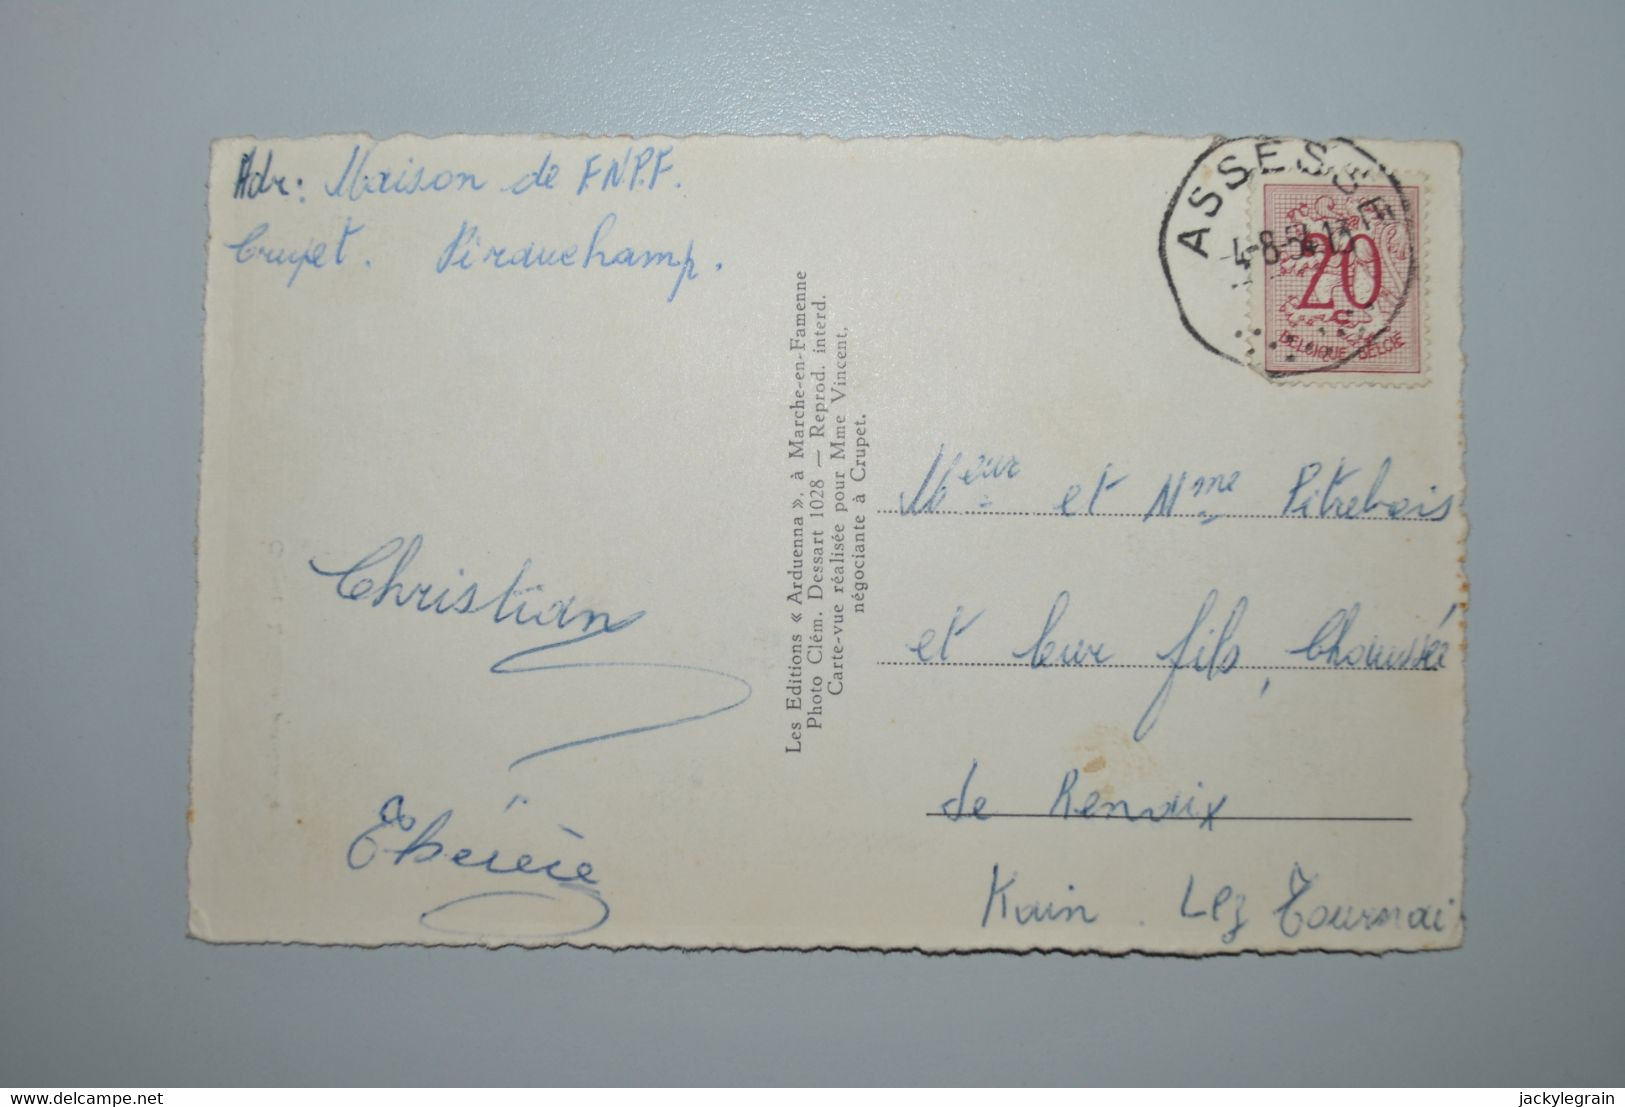 Adr: Maison de F.N.P.F.
Crupet. Pirauchamp.
Christian
Les Editions « Arduenna », à Marche-en-Famenne
Photo Clém. Dessart 1028 — Reprod. interd.
Carte-vue réalisée pour Mme Vincent,
négociante à Crupet.
ASSESSE
4-8-54 13
20
c
BELGIQUE-BELGIE
Meur et Mme Pitrebois
et leur fils, Chaussée
de Renaix
Kain. Lez Tournai
www.delcampe.net
jackylegrain